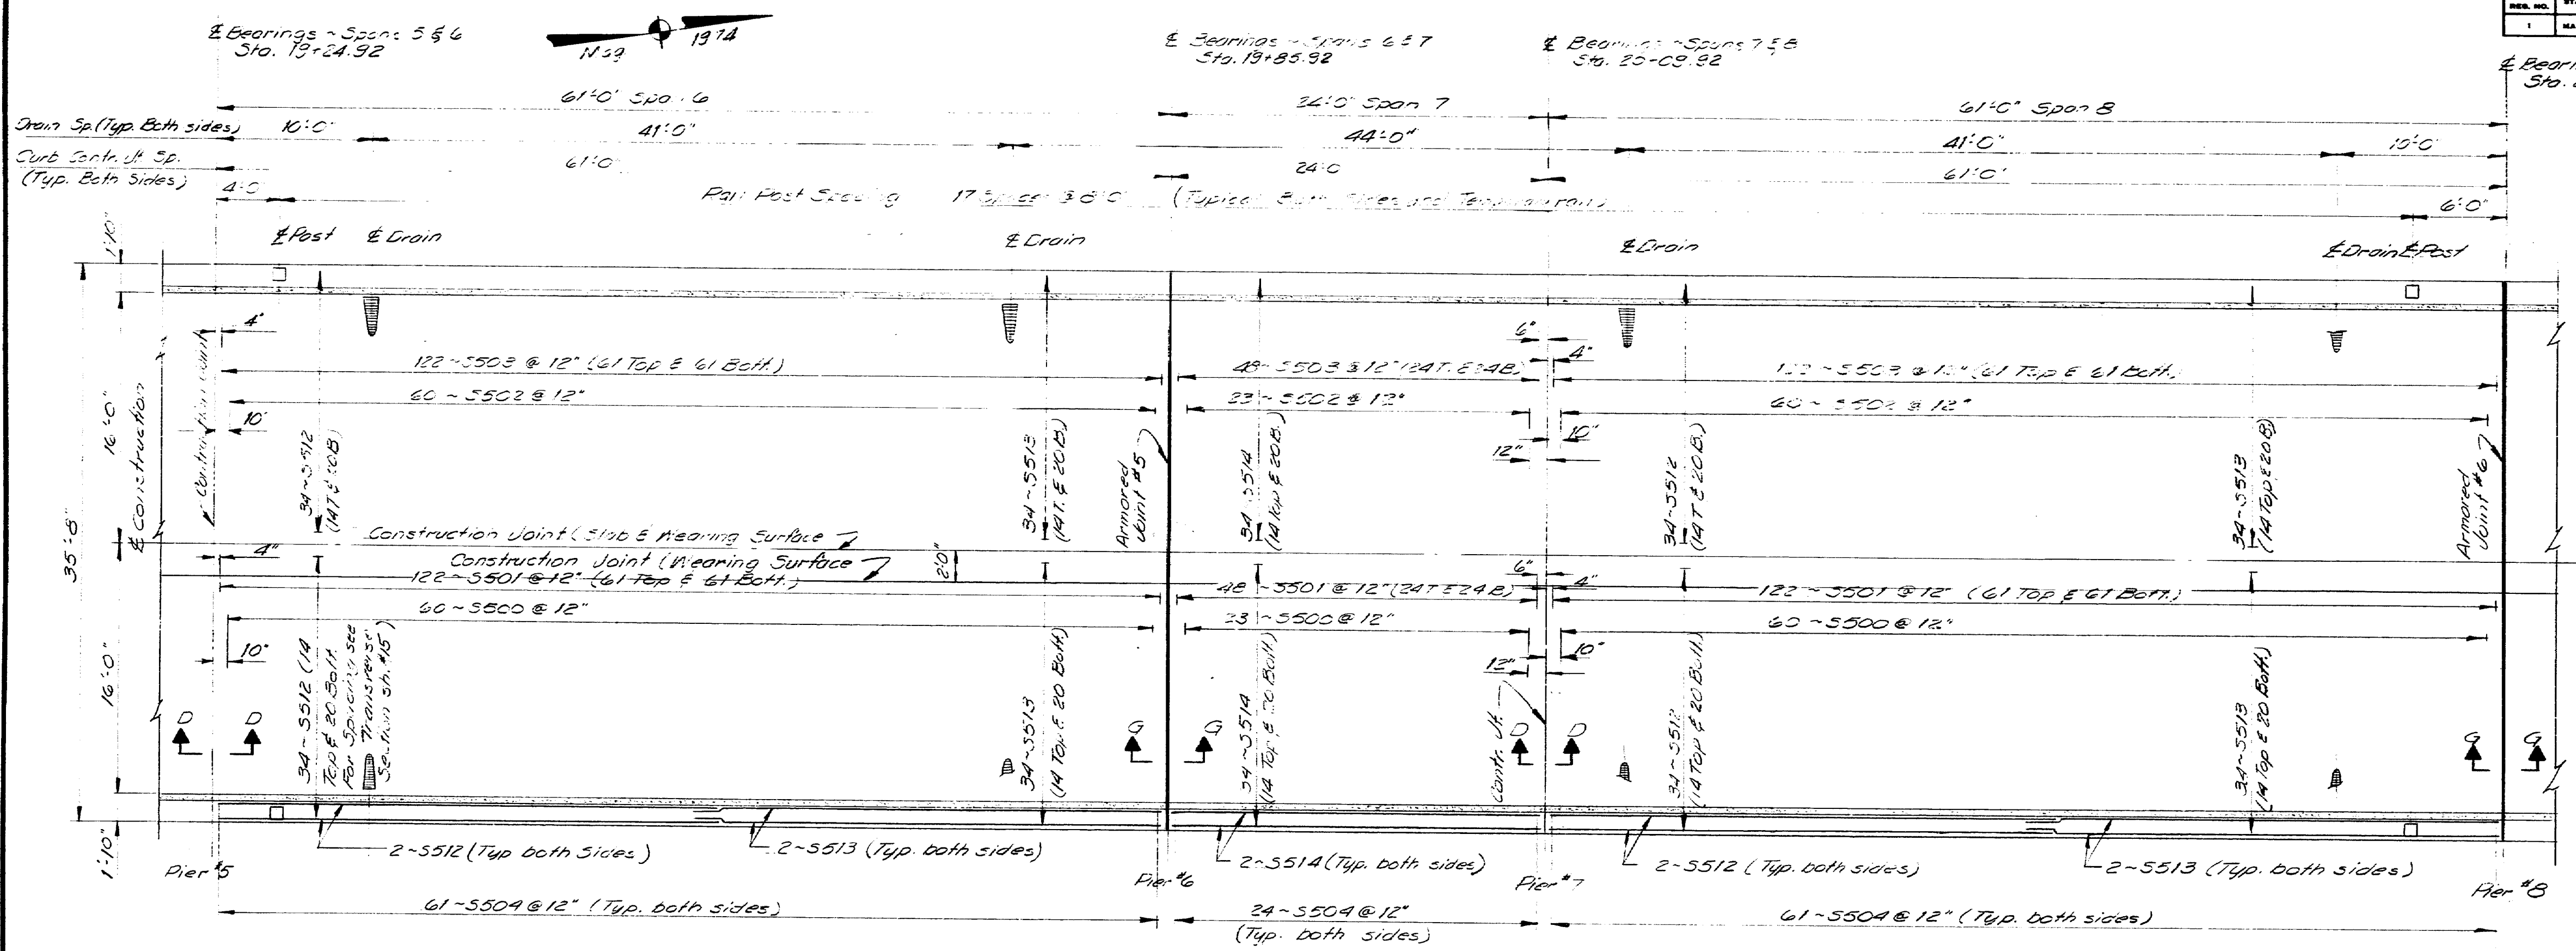 REG. NO.
1
℄ Bearings ~ Spans 5 & 6
Sta. 19+24.92
Mag
1974
℄ Bearings ~ Spans 6 & 7
Sta. 19+85.92
℄ Bearings ~ Spans 7 & 8
Sta. 20+09.92
℄ Bear
Sta.
61'-0" Span 6
24'-0" Span 7
61'-0" Span 8
Drain Sp. (Typ. Both sides)
10'-0"
41'-0"
44'-0"
41'-0"
10'-0"
Curb Contr. Jt. Sp.
(Typ. Both Sides)
61'-0"
24'-0
61'-0"
4'-0
Rail Post Spacing 17 Spaces @ 8'-0" (Typical Both Sides and Temporary rail)
6'-0"
℄ Post
℄ Drain
℄ Drain
℄ Drain
℄ Drain
℄ Post
1'-10"
16'-0"
35'-8"
16'-0"
1'-10"
℄ Construction
Contraction Joint
4"
122~S503 @ 12" (61 Top & 61 Bott.)
60 ~ S502 @ 12"
10"
34~S512
(14T & 20B)
34~S513
(14T. & 20B.)
Armored
Joint #5
6"
4"
48~S503 @ 12" (24T. & 24B)
23 ~ S502 @ 12"
10"
12"
34 S514
(14 Top & 20B.)
122~S503 @ 12" (61 Top & 61 Bott.)
60 ~ S502 @ 12"
34~S512
(14T & 20B.)
34~S513
(14 Top & 20B)
Armored
Joint #6
Construction Joint (Slab & Wearing Surface
Construction Joint (Wearing Surface
2'-0"
4"
122~S501 @ 12" (61 Top & 61 Bott.)
60 ~ S500 @ 12"
10"
6"
4"
48 ~S501 @ 12" (24T & 24B)
23 ~ S500 @ 12"
10"
12"
122~S501 @ 12" (61 Top & 61 Bott.)
60 ~ S500 @ 12"
34~S512 (14
Top & 20 Bott.
For Spacing see
Transverse
Section sh. #15)
34~S513
(14 Top & 20 Bott.)
34~S514
(14 Top & 20 Bott.)
Contr. Jt.
34~S512
(14 Top & 20 Bott.)
34~S513
(14 Top & 20 Bott.)
D
D
G
G
D
D
G
G
2~S512 (Typ both sides)
2~S513 (Typ. both sides)
2~S514 (Typ. both sides)
2~S512 (Typ. both sides)
2~S513 (Typ. both sides)
Pier #5
Pier #6
Pier #7
Pier #8
61~S504 @ 12" (Typ. both sides)
24~S504 @ 12"
(Typ. both sides)
61~S504 @ 12" (Typ. both sides)